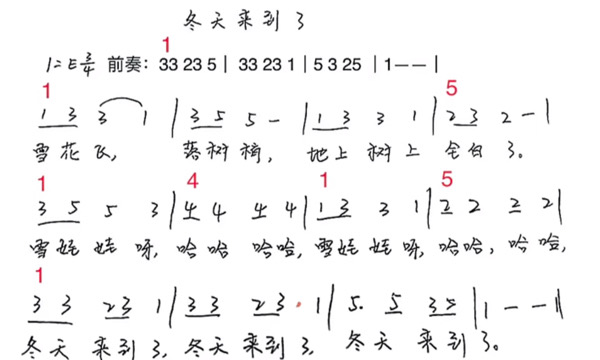 冬天来到了
1
1=E 3/4 前奏: 33 23 5 | 33 23 1 | 5 3 25 | 1—— |
1 5
1 3 3 1 | 3 5 5 - | 1 3 3 1 | 2 3 2 - |
雪花飞, 落树梢, 地上树上全白了。
1 4 1 5
3 5 5 3 | 4 4 4 4 | 1 3 3 1 | 2 2 2 2 |
雪娃娃呀, 哈哈 哈哈, 雪娃娃呀, 哈哈, 哈哈,
1
3 3 23 1 | 33 23 1 | 5. 5 35 | 1 - - ||
冬天来到了, 冬天来到了, 冬天来到了。